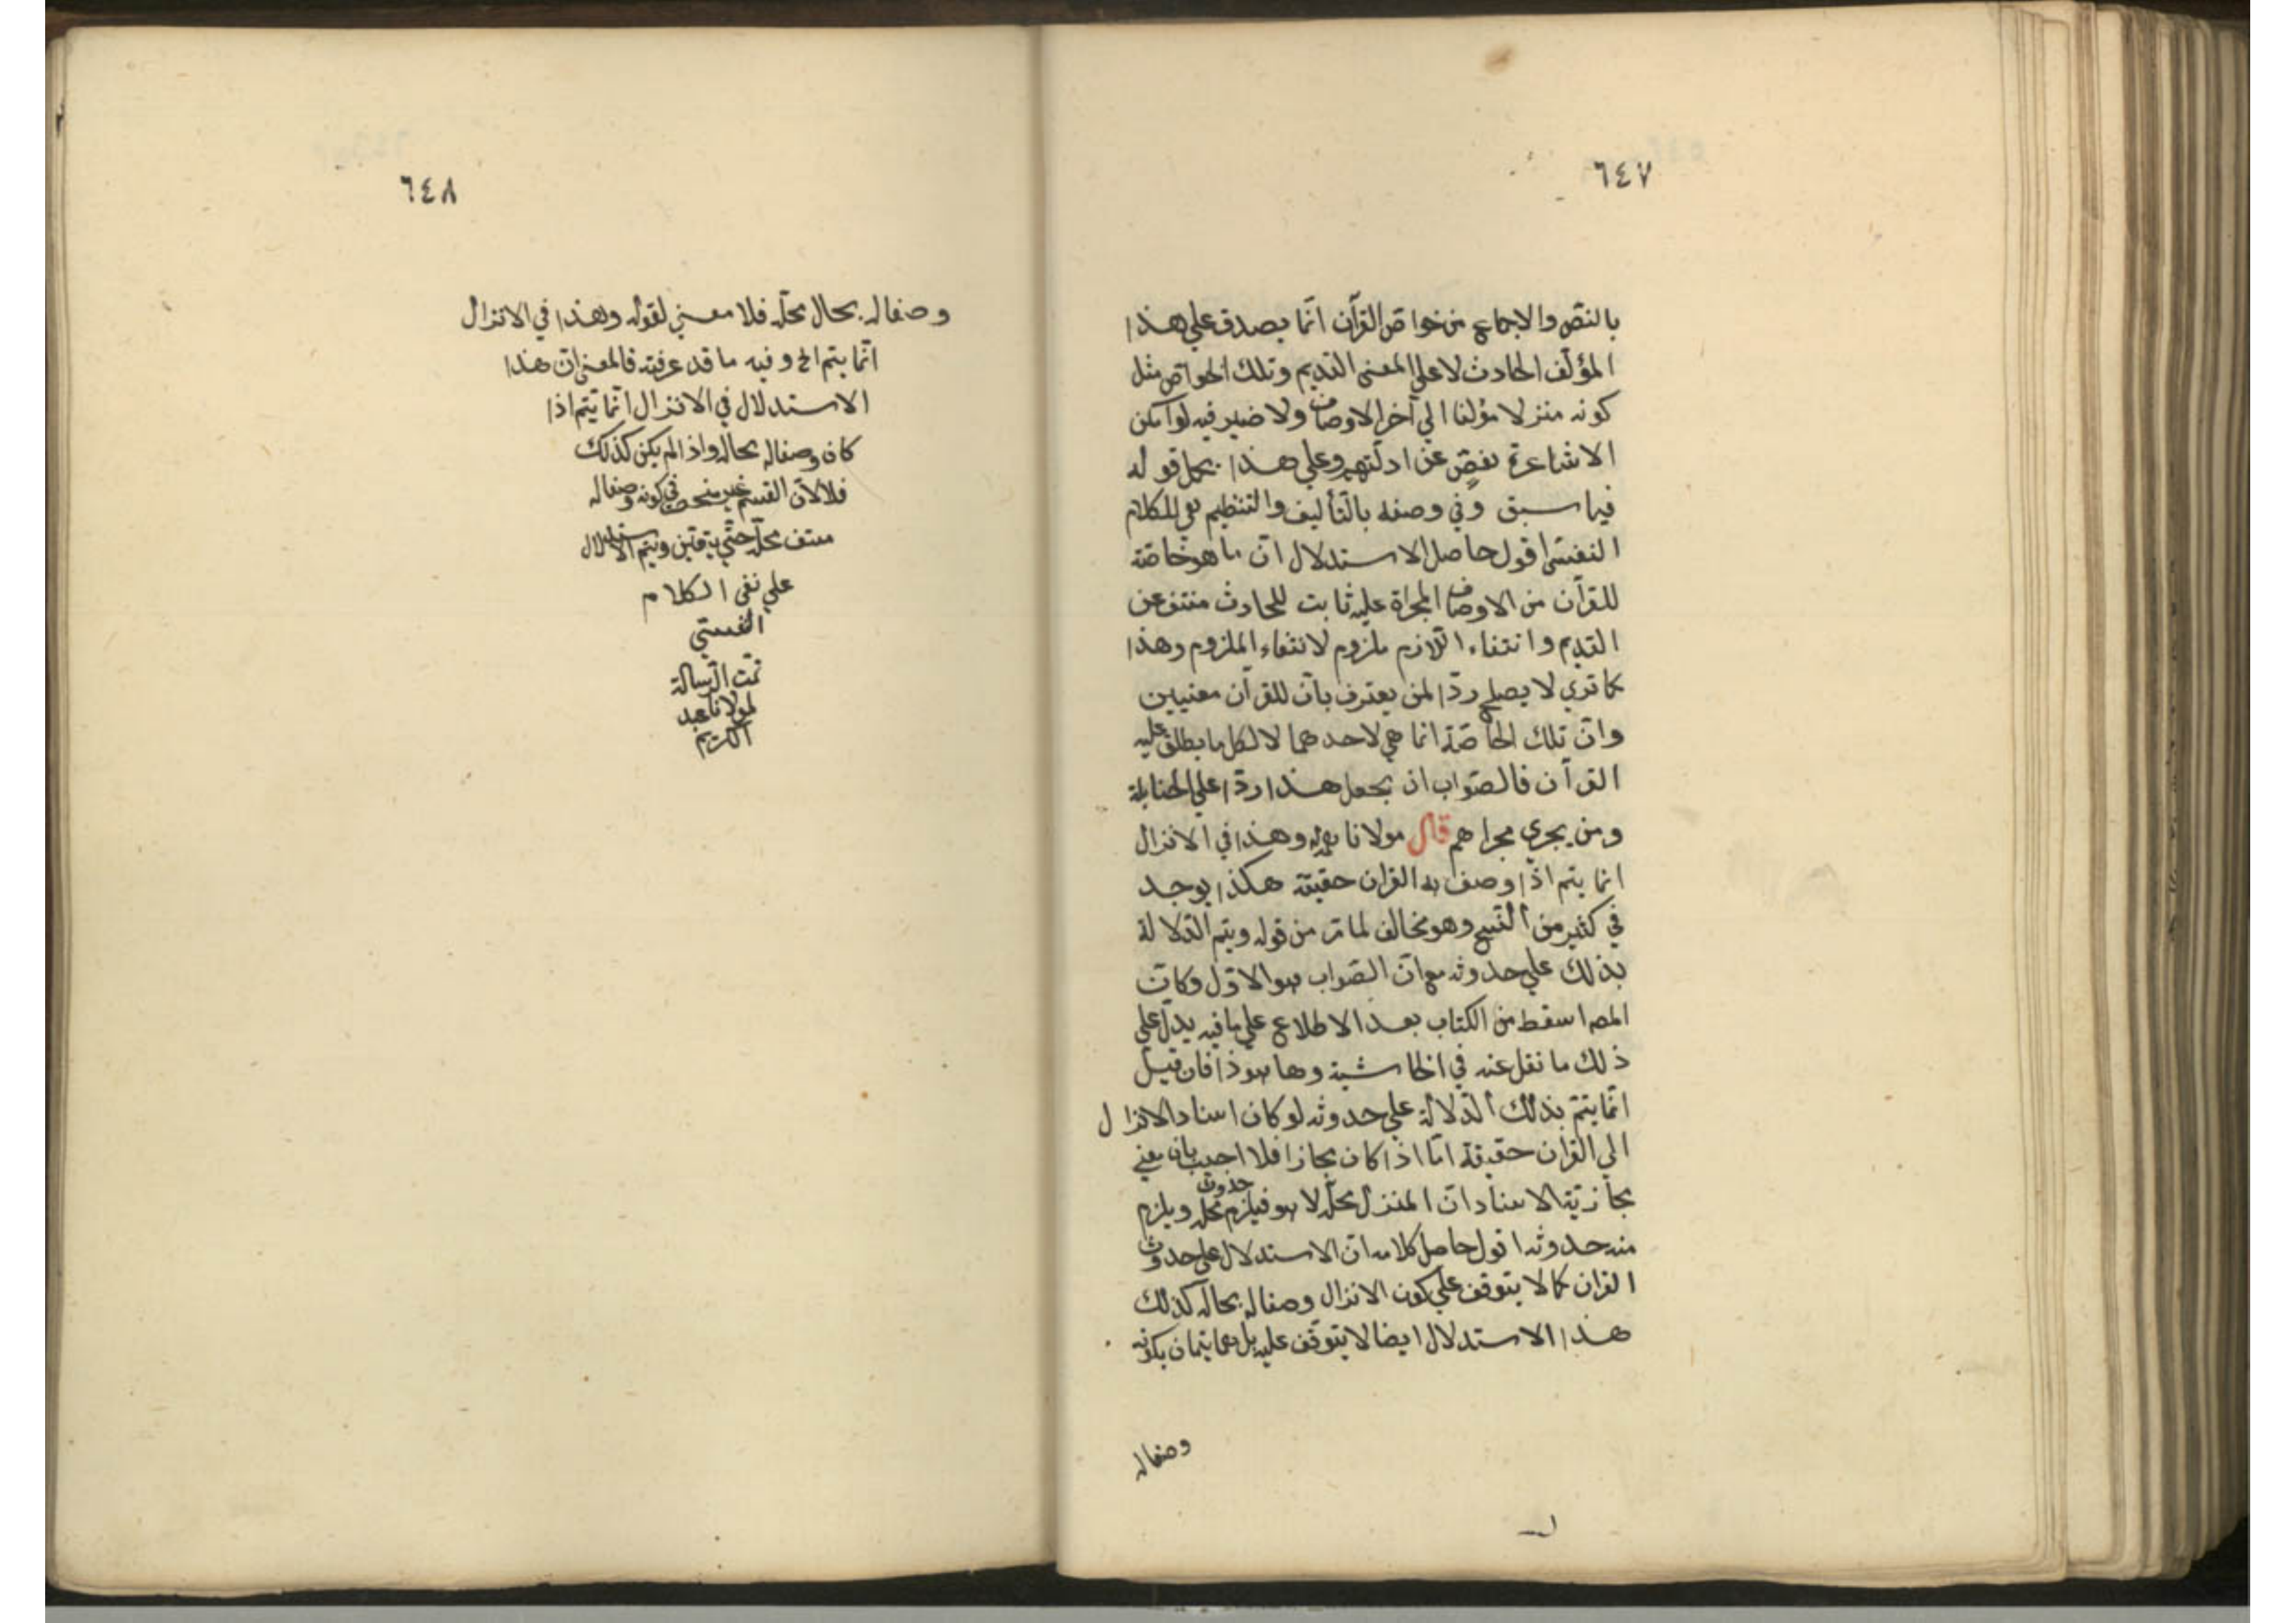 ٦٤٧
بالنصّ والاجماع من خواصّ القرآن انّما يصدق علي هذا
المؤلّف الحادث لا علي المعنى القديم وتلك الخواصّ مثل
كونه منزلا مؤلفا الي آخر الاوصاف ولا ضير فيه لو امكن
الاشاعرة تفصٍّ عن ادلّتهم وعلي هذا يحمل قوله
فيما سبق وفي وصفه بالتأليف والتنظيم نفي للكلام
النفسى اقول حاصل الاستدلال انّ ما هو خاصّة
للقرآن من الاوصاف المجراة عليه ثابت للحادث منتف عن
القديم وانتفاء اللّازم ملزوم لانتفاء الملزوم وهذا
كما تري لا يصلح ردّا لمن يعترف بانّ للقرآن معنيين
وانّ تلك الخاصّة انما هي لاحدهما لا لكل ما يطلق عليه
القرآن فالصّواب ان يجعل هذا ردّا علي الحنابلة
ومن يجري مجراهم قال مولانا قوله وهذا في الانزال
انما يتم اذا وصف به القران حقيقة هكذا يوجد
في كثير من النّسخ وهو مخالف لما مرّ من قوله ويتم الدّلالة
بذلك علي حدوثه مع انّ الصّواب هو الاوّل وكانّ
المصـ اسقط من الكتاب بعد الاطلاع علي ما فيه يدلّ علي
ذلك ما نقل عنه في الحاشية وها هو ذا فان قيل
انّما يتمّ بذلك الدّلالة علي حدوثه لو كان اسناد الانزال
الي القران حقيقة امّا اذا كان مجازا فلا اجيب بان معني
مجازيّة الاسناد انّ المنزل محلّه لا هو فيلزم حدوث محله ويلزم
منه حدوثه اقول حاصل كلامه انّ الاستدلال علي حدوث
القران كما لا يتوقف علي كون الانزال وصفا له بحاله كذلك
هذا الاستدلال ايضا لا يتوقّف عليه بل هما يتمان بكونه
وصفا له
٦٤٨
وصفا له بحال محلّه فلا معني لقوله وهذا في الانزال
انّما يتم الخ وفيه ما قد عرفته فالمعنى انّ هذا
الاستدلال في الانزال انّما يتم اذا
كان وصفا له بحاله واذا لم يكن كذلك
فلا لانّ القسم غير منحصر في كونه وصفا له
محلّه حتّي ويتم الاستدلال
علي نفى الكلام
النفسي
تمّت الرّسالة
لمولانا عبد
الكريم